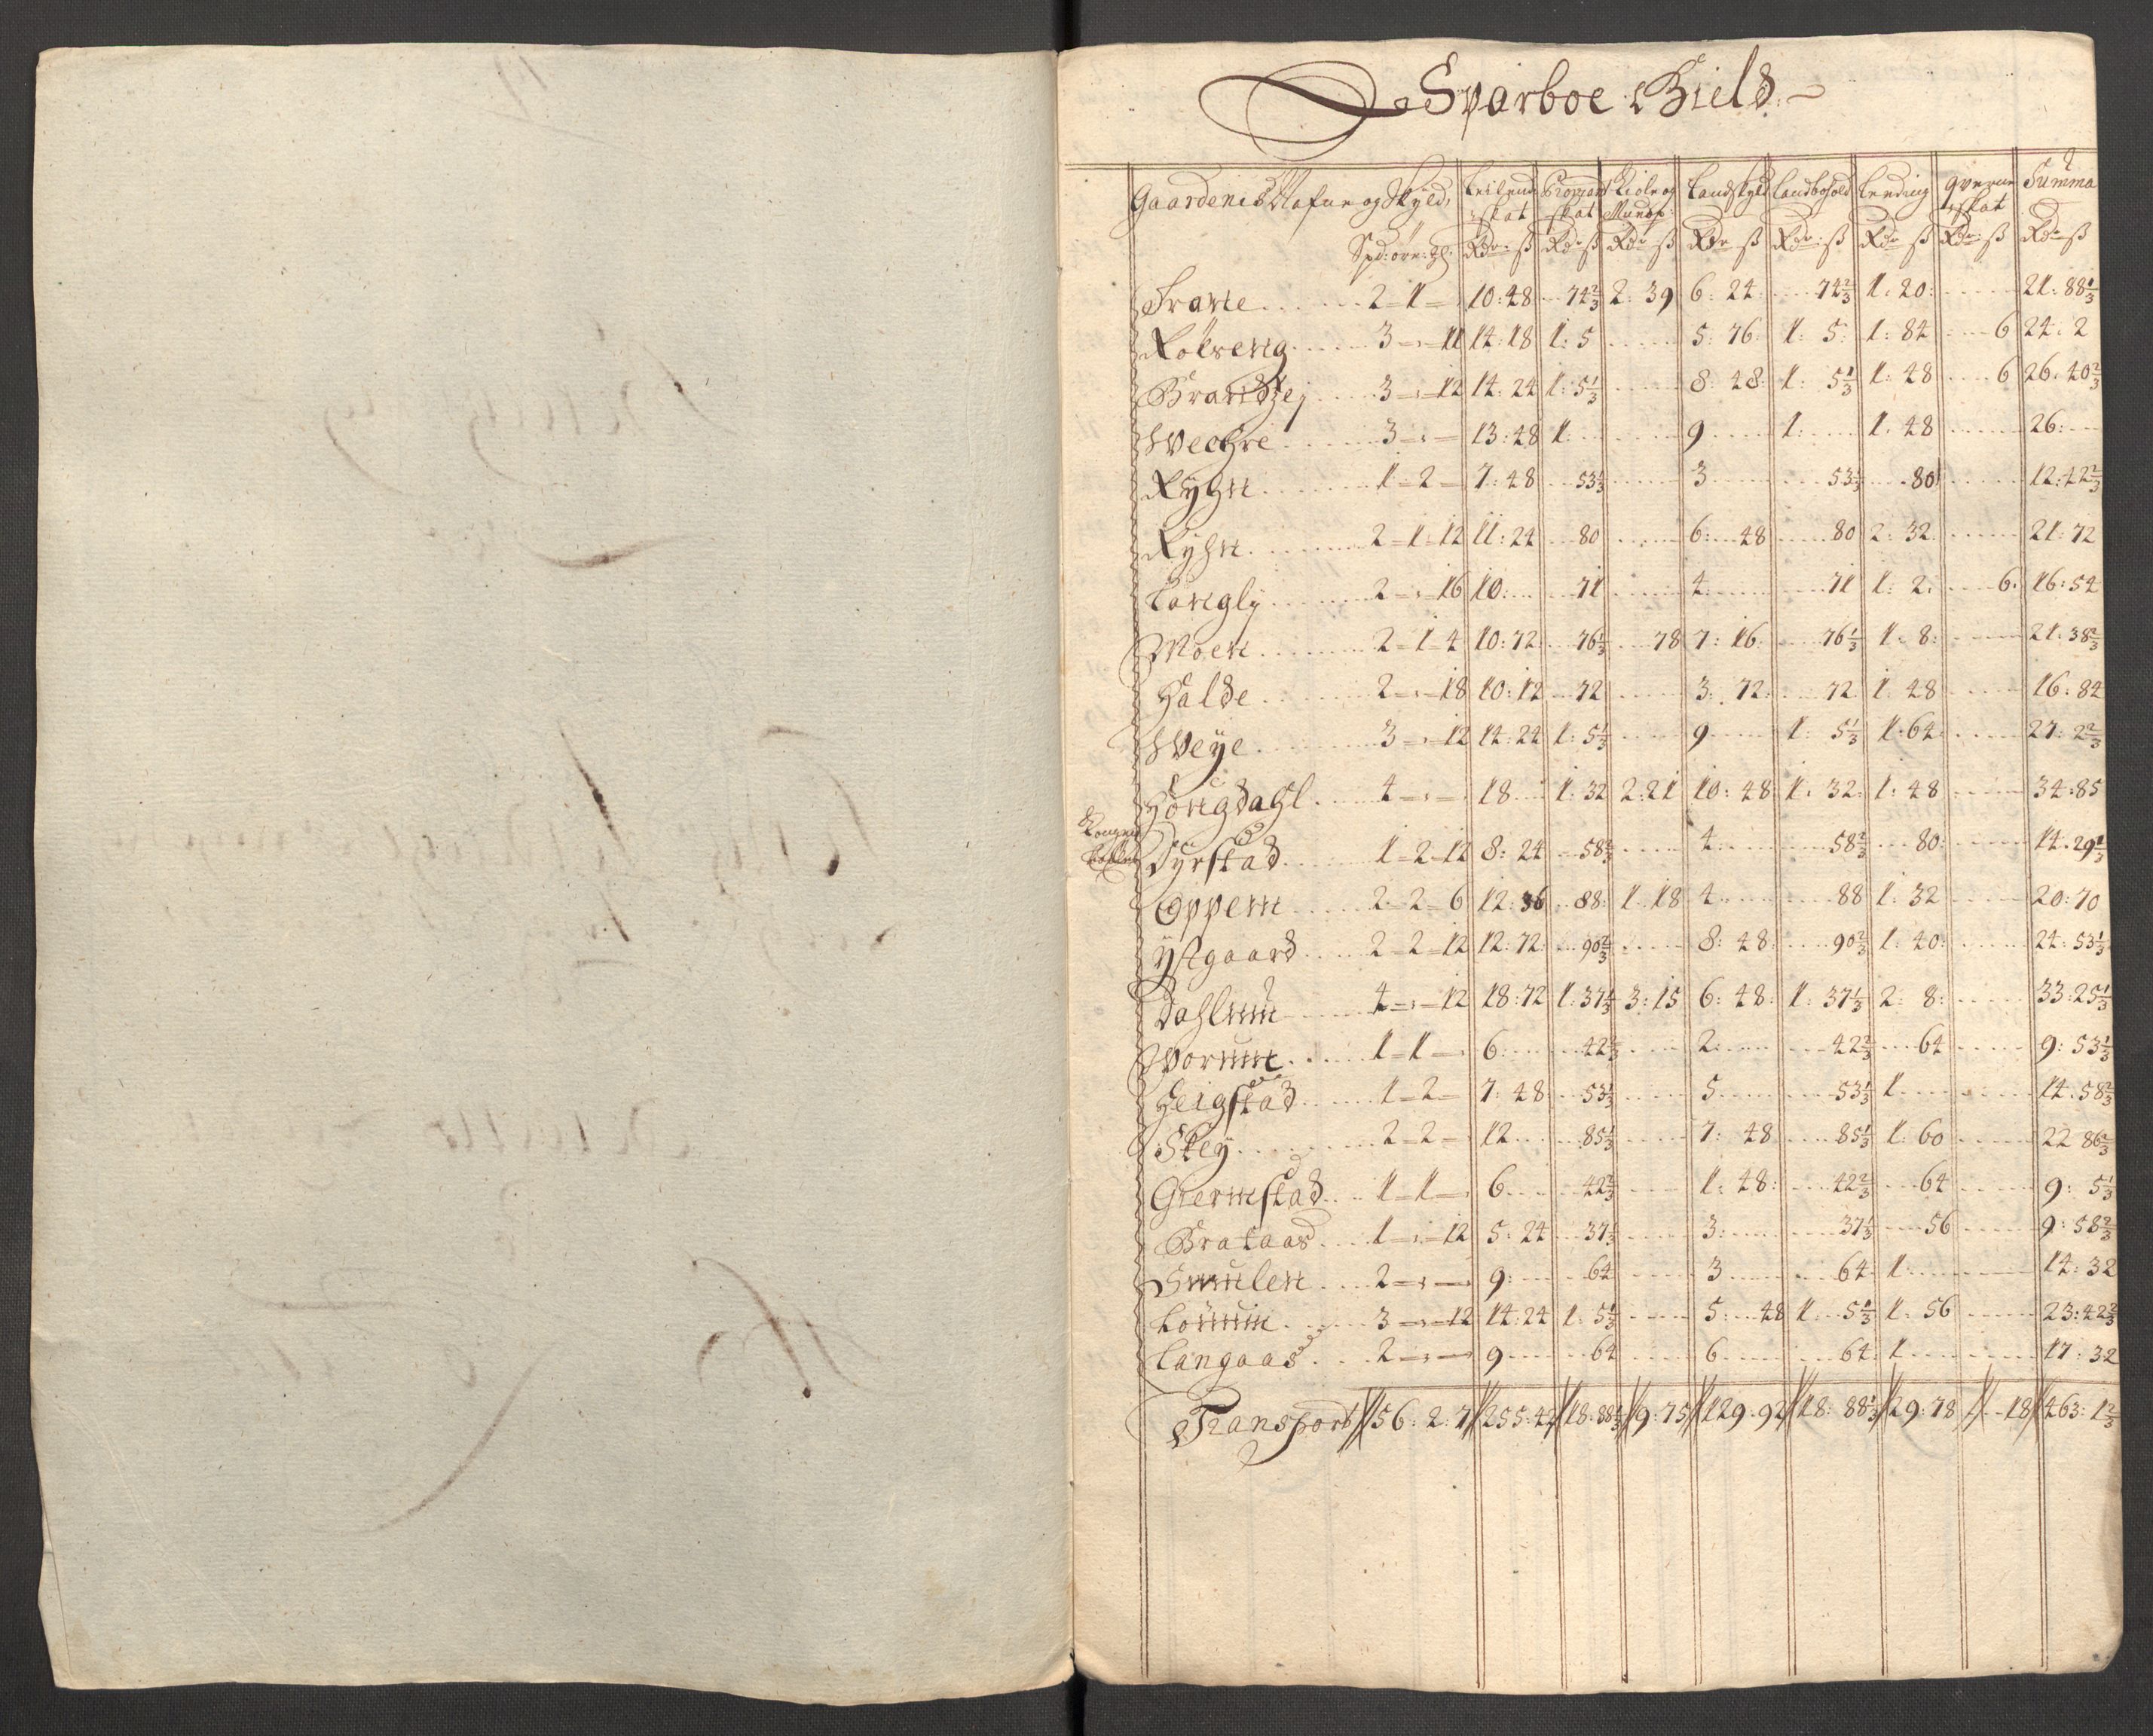 Sparboe Gield
Gaardenis Nafne og Skyld, Leilend: skat Proviant skat Kiole og Mundp: Landskyld Landbohold Leeding qverne skat Summa
Spd: öre: gl: Rdr ß Rdr ß Rdr ß Rdr ß Rdr ß Rdr ß Rdr ß Rdr ß
Trane 2 - 1 - 10:48 74 2/3 2:39 6:24 74 2/3 1:20: 21:88 1/3
Rökseng 3 - : - 11 14:18 1:5 5:76 1:5: 1:84 6 24:2
Brandzej 3 - : - 12 14:24 1:5 1/3 8:48: 1:5 1/3 1:48 6 26:40 2/3
Wechre 3 - : - 13:48 1: 9 1: 1:48 26:
Rygn 1 - 2 - 7:48 53 1/3 3 53 1/3 80 12:42 2/3
Ryhn 2 - 1 - 12 11:24 80 6:48 80 2:32 21:72
Langly 2 - : - 16 10: 71 4 71 1:2: 6: 16:54
Moen 2 - 1 - 4 10:72 76 1/3 78 7:16 76 1/3 1:8: 21:38 2/3
Halde 2 - : - 18 10:12 72 3:72: 72 1:48 16:84
Weye 3 - : - 12 14:24 1:5 1/3 9 1:5 1/3 1:64 27:2 2/3
Höngdahl 4 - : - 18 1:32 2:21 10:48 1:32 1:48 34:85
Dyrstad 1 - 2 - 12 8:24 58 2/3 4 58 2/3 80: 14:29 1/3
Oppem 2 - 2 - 6 12:36 88: 1:18 4 88 1:32 20:70
ystgaard 2 - 2 - 12 12:72: 90 2/3 8:48: 90 2/3 1:40: 24:53 1/3
Dahlum 4 - : - 12 18:72 1:37 1/3 3:15 6:48: 1:37 1/3 2:8: 33:25 1/3
Worum 1 - 1 - 6: 42 2/3 2: 42 2/3 64 9:53 1/3
Heigstad 1 - 2 - 7:48 53 1/3 5 53 1/3 1 14:58 2/3
Skey 2 - 2 - 12 85 1/3 7:48 85 1/3 1:60 22 86 2/3
Giermstad 1 - 1 - 6 42 2/3 1:48: 42 2/3 64 9:5 1/3
Brataas 1 - : - 12 5:24 37 1/3 3: 37 1/3 56 9:58 2/3
Smulen 2 - : - 9: 64 3 64 1: 14:32
Lönum 3 - : - 12 14:24 1:5 1/3 5:48 1:5 1/3 1:56 23:42 2/3
Langaas 2 - : - 9 64 6 64: 1 17:32
Transport 56:2:7 255:42 18:88 1/3 9:75 129:92 18:88 1/3 29:78 18 463:1 2/3